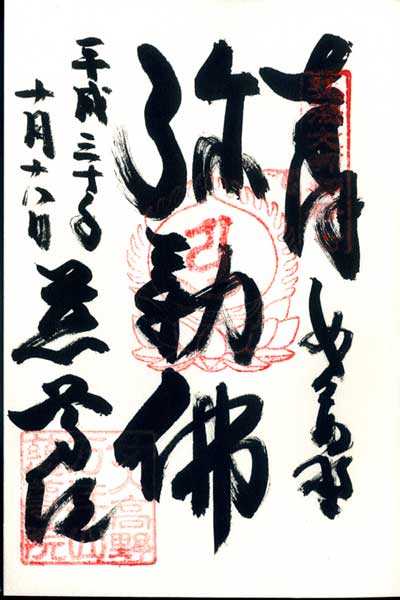 弥勒佛
平成三十年
十月十八日
慈尊院
女人高野
万年山
慈尊院